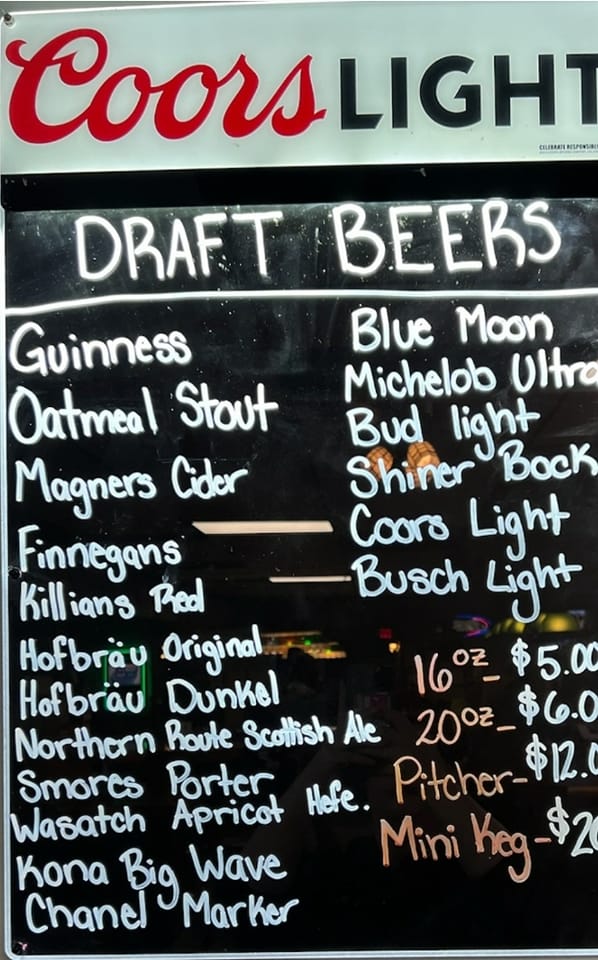 Coors LIGHT
CELEBRATE RESPONSIBLY
DRAFT BEERS
Guinness
Oatmeal Stout
Magners Cider
Finnegans
Killians Red
Hofbräu Original
Hofbräu Dunkel
Northern Route Scottish Ale
Smores Porter
Wasatch Apricot Hefe.
Kona Big Wave
Chanel Marker
Blue Moon
Michelob Ultra
Bud light
Shiner Bock
Coors Light
Busch Light
16oz - $5.00
20oz - $6.0
Pitcher - $12.0
Mini Keg - $20